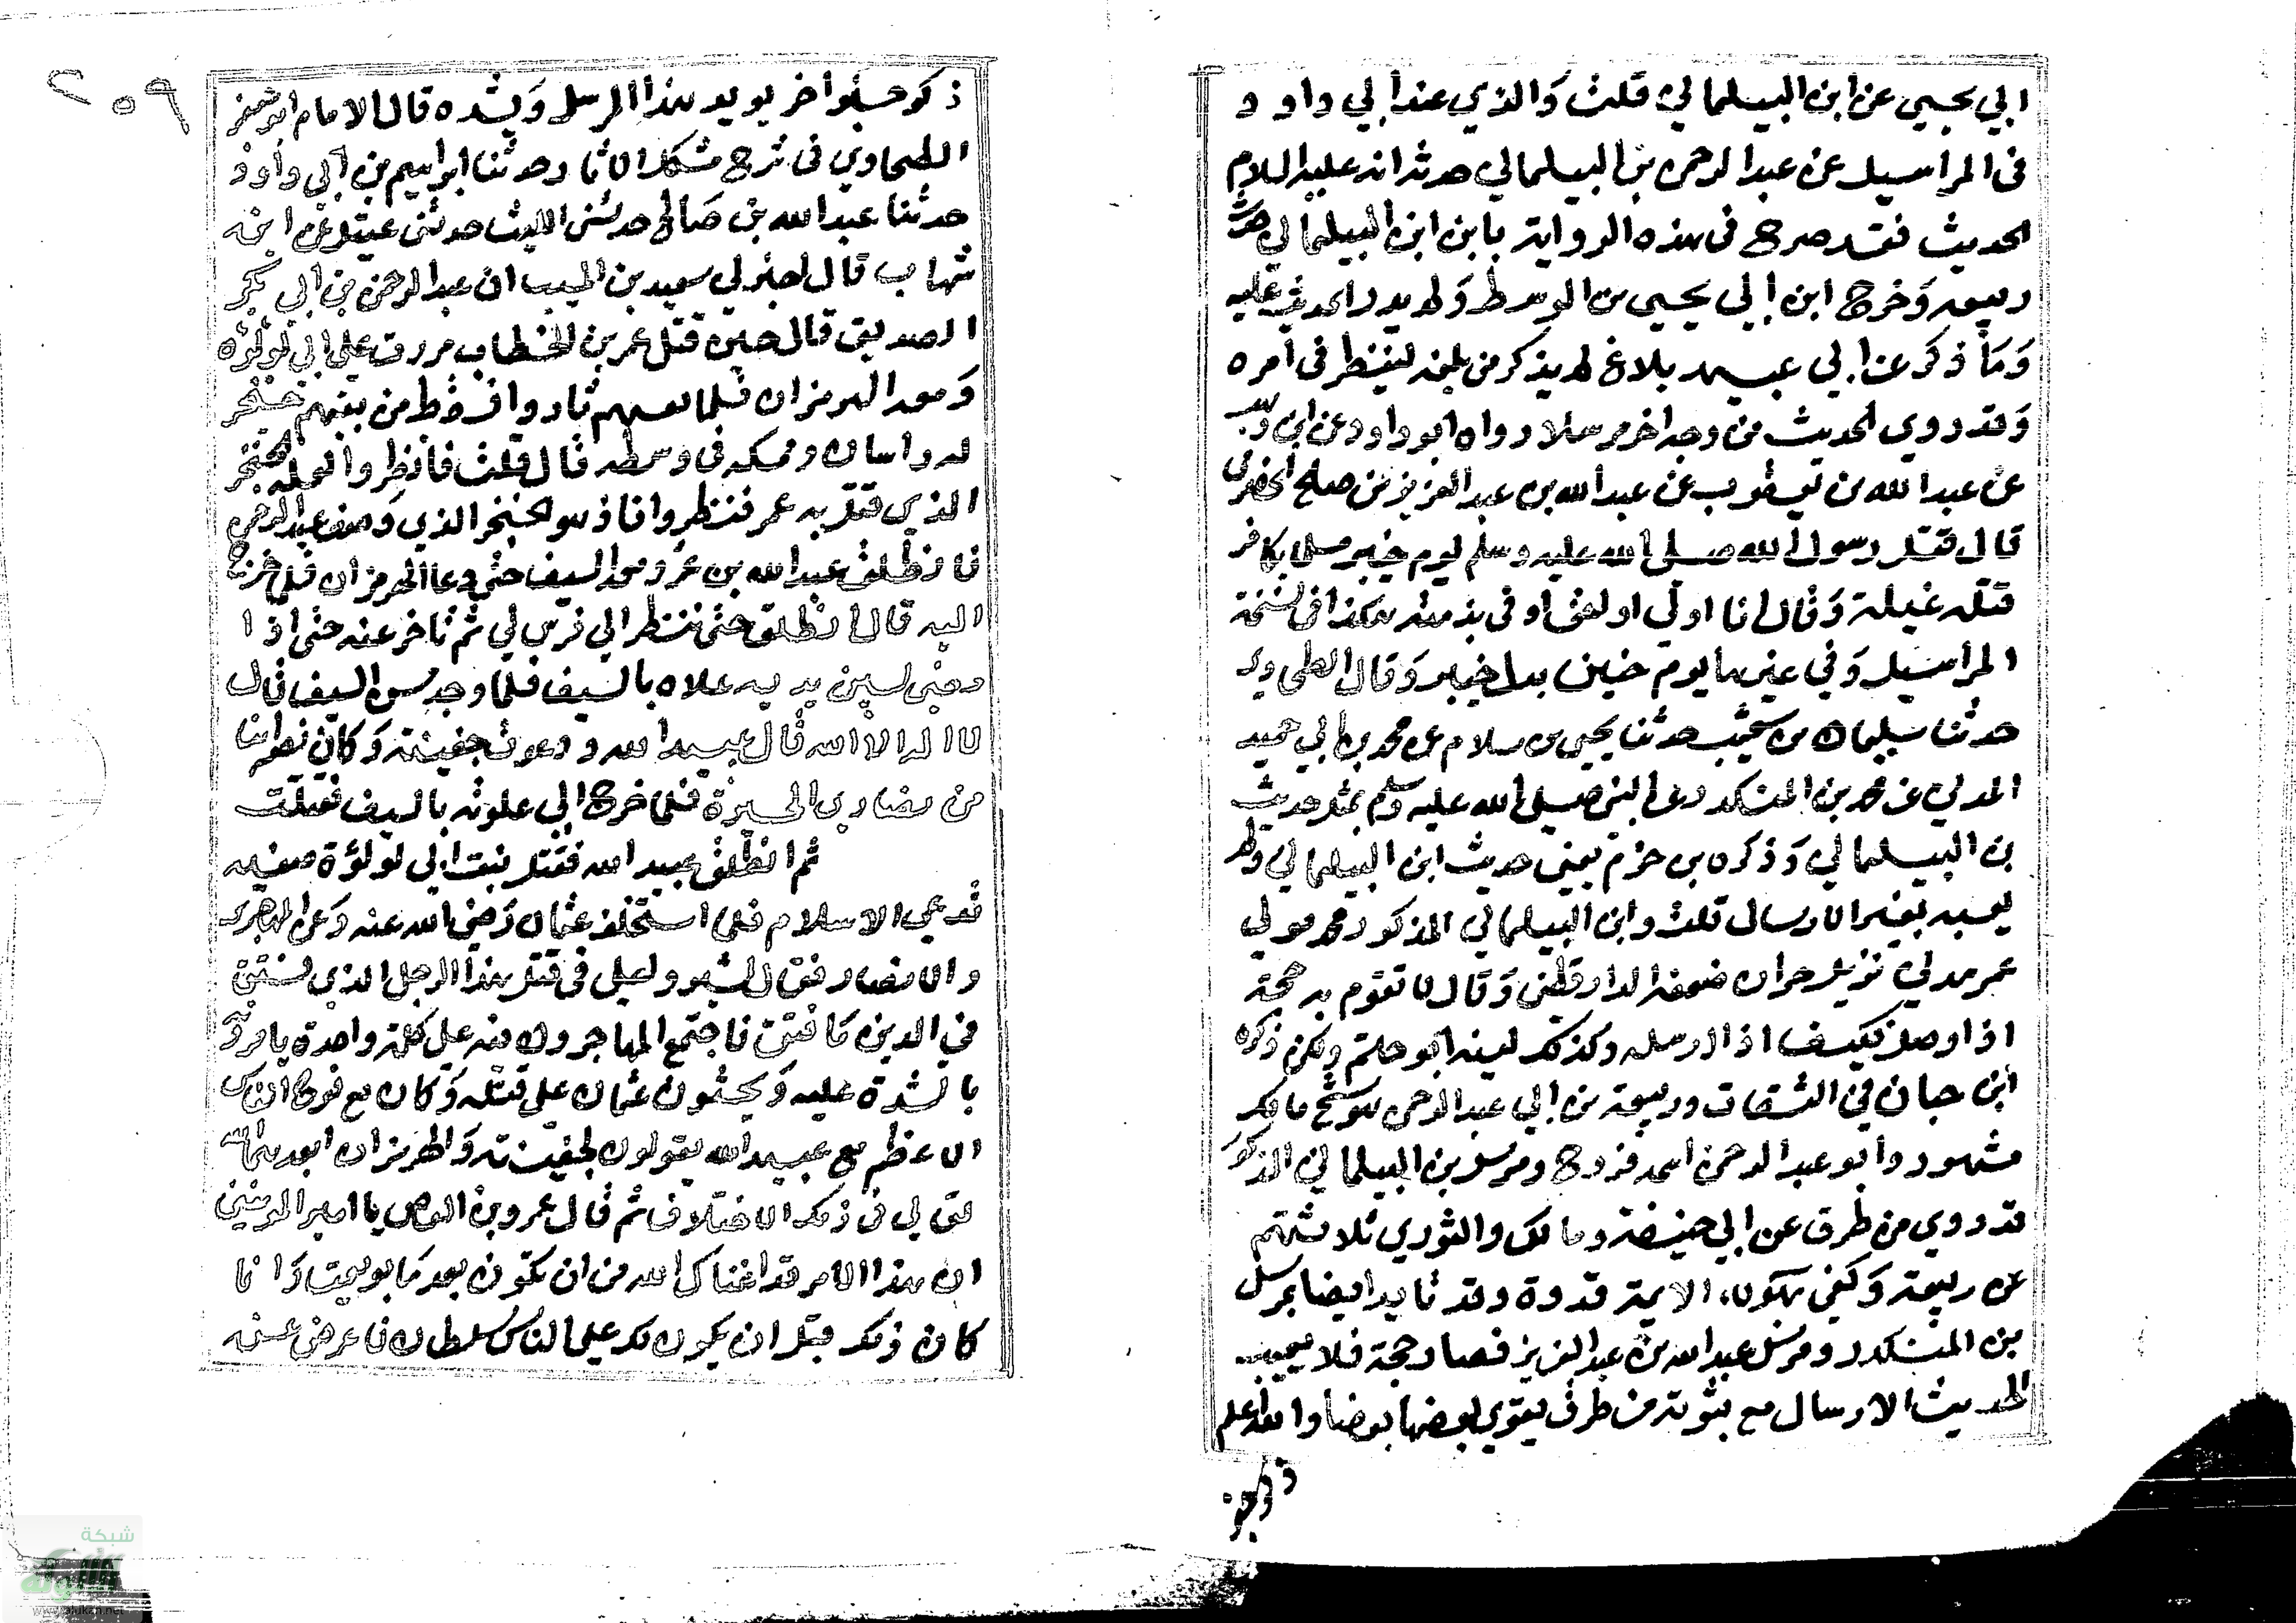 ابي يحيى عن ابن البيلماني قلت والذي عند ابي داود
في المراسيل عن عبد الرحمن بن البيلماني حدثه انه عليه السلام
الحديث فقد صرح في هذه الرواية بان ابن البيلماني حدث
ربيعه وخرج ابن ابي يحيى من الوسط ولم يدر الحديث عليه
وما ذكر عن ابي عبيد بلاغ لم يذكر من بلغه لينظر في امره
وقد روي الحديث من وجه اخر مرسلا رواه ابو داود عن ابن وهب
عن عبد الله بن يعقوب عن عبد الله بن عبد العزيز بن صالح الحضرمي
قال قتل رسول الله صلى الله عليه وسلم يوم خيبر مسلما بكافر
قتله غيلة وقال انا اولى او احق اوفى بذمته هكذا في نسخة
المراسيل وفي غيرها يوم حنين بدل خيبر وقال الطحاوي
حدثنا سليمان بن شعيب حدثنا يحيى بن سلام عن محمد بن ابي حميد
المدني عن محمد بن المنكدر عن النبي صلى الله عليه وسلم بمثل حديث
بن البيلماني وذكره بن حزم يعني حديث ابن البيلماني ولم
يعبه بغير الارسال قلت وابن البيلماني المذكور محمد مولى
عمر مدني نزيل حران ضعفه الدارقطني وقال لا تقوم به حجة
اذا وصل فكيف اذا ارسله وكذلك لينه ابو حاتم ولكن ذكره
ابن حبان في الثقات وربيعة بن ابي عبد الرحمن هو شيخ مالك
مشهور وابو عبد الرحمن اسمه فروخ ومرسل بن البيلماني المذكور
قد روي من طرق عن ابي حنيفة ومالك والثوري ثلاثتهم
عن ربيعة وكفى بهولاء الايمة قدوة وقد تايد ايضا بمرسل
بن المنكدر ومرسل عبد الله بن عبد العزيز فصار حجة فلا يعيب
الحديث الارسال مع ثبوته من طرق يقوي بعضها بعضا والله اعلم
٢٠٩
ذكر حديث اخر يويد هذا المرسل ويشده قال الامام ابو جعفر
الطحاوي في شرح مشكل الاثار وحدثنا ابراهيم بن ابي داود
حدثنا عبد الله بن صالح حدثني الليث حدثني عقيل عن ابن
شهاب قال اخبرني سعيد بن المسيب ان عبد الرحمن بن ابي بكر
الصديق قال حين قتل عمر بن الخطاب مررت على ابي لؤلؤه
ومعه الهرمزان فلما بعجهم ثاروا فسقط من بينهم خنجر
له راسان وممسكه في وسطه قال قلت فانظروا لعله الخنجر
الذي قتل به عمر فنظروا فاذ هو الخنجر الذي وصف عبد الرحمن
فانطلق عبيد الله بن عمر ومعه السيف حتى دعا الهرمزان فلما خرج
اليه قال انطلق حتى ننظر الى فرس لي ثم تاخر عنه حتى اذا
مضى بين يديه علاه بالسيف فلما وجد مس السيف قال
لا اله الا الله قال عبيد الله ودعوت جفينة وكان نصرانيا
من نصارى الحيرة فلما خرج الي علوته بالسيف فقتلت
ثم انطلق عبيد الله فقتل بنت ابي لؤلؤة صغيره
تدعي الاسلام فلما استخلف عثمان رضي الله عنه دعى المهاجرين
والانصار فقال اشيروا علي في قتل هذا الرجل الذي فتق
في الدين ما فتق فاجتمع المهاجرون فيه على كلمة واحدة يامرونه
بالشدة عليه ويحثون عثمان على قتله وكان مع فوج الناس
الاعظم مع عبيد الله يقولون لجفينة والهرمزان ابعدهما الله
في ذلك الاختلاف ثم قال عمرو بن العاص يا امير المومنين
ان هذا الامر قد اغناك الله من ان يكون بعد ما بويعت وانما
كان ذلك قبل ان يكون لك على الناس سلطان فاعرض عنه
شبكة
الألوكة
www.alukah.net